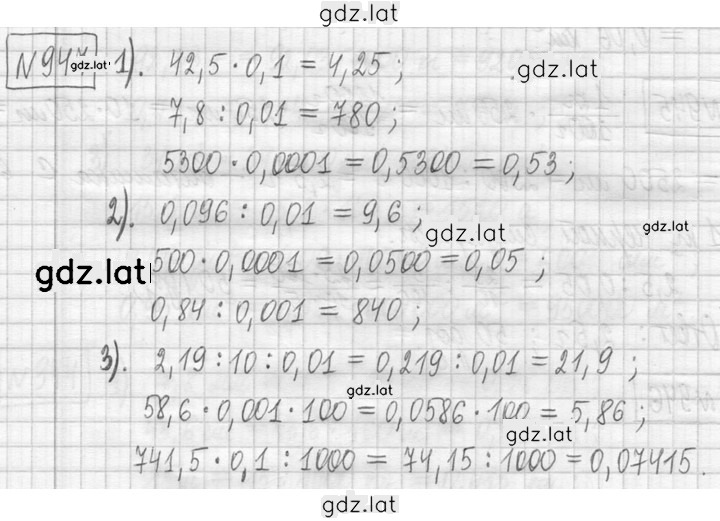 gdz.lat
№94 gdz.lat 1). 42,5 · 0,1 = 4,25 ; gdz.lat
7,8 : 0,01 = 780 ;
5300 · 0,0001 = 0,5300 = 0,53 ;
2). 0,096 : 0,01 = 9,6 ; gdz.lat gdz.lat
gdz.lat 500 · 0,0001 = 0,0500 = 0,05 ;
0,84 : 0,001 = 840 ;
3). 2,19 : 10 : 0,01 = 0,219 : 0,01 = 21,9 ;
gdz.lat
58,6 · 0,001 · 100 = 0,0586 · 100 = 5,86 ;
gdz.lat
741,5 · 0,1 : 1000 = 74,15 : 1000 = 0,07415 .
gdz.lat